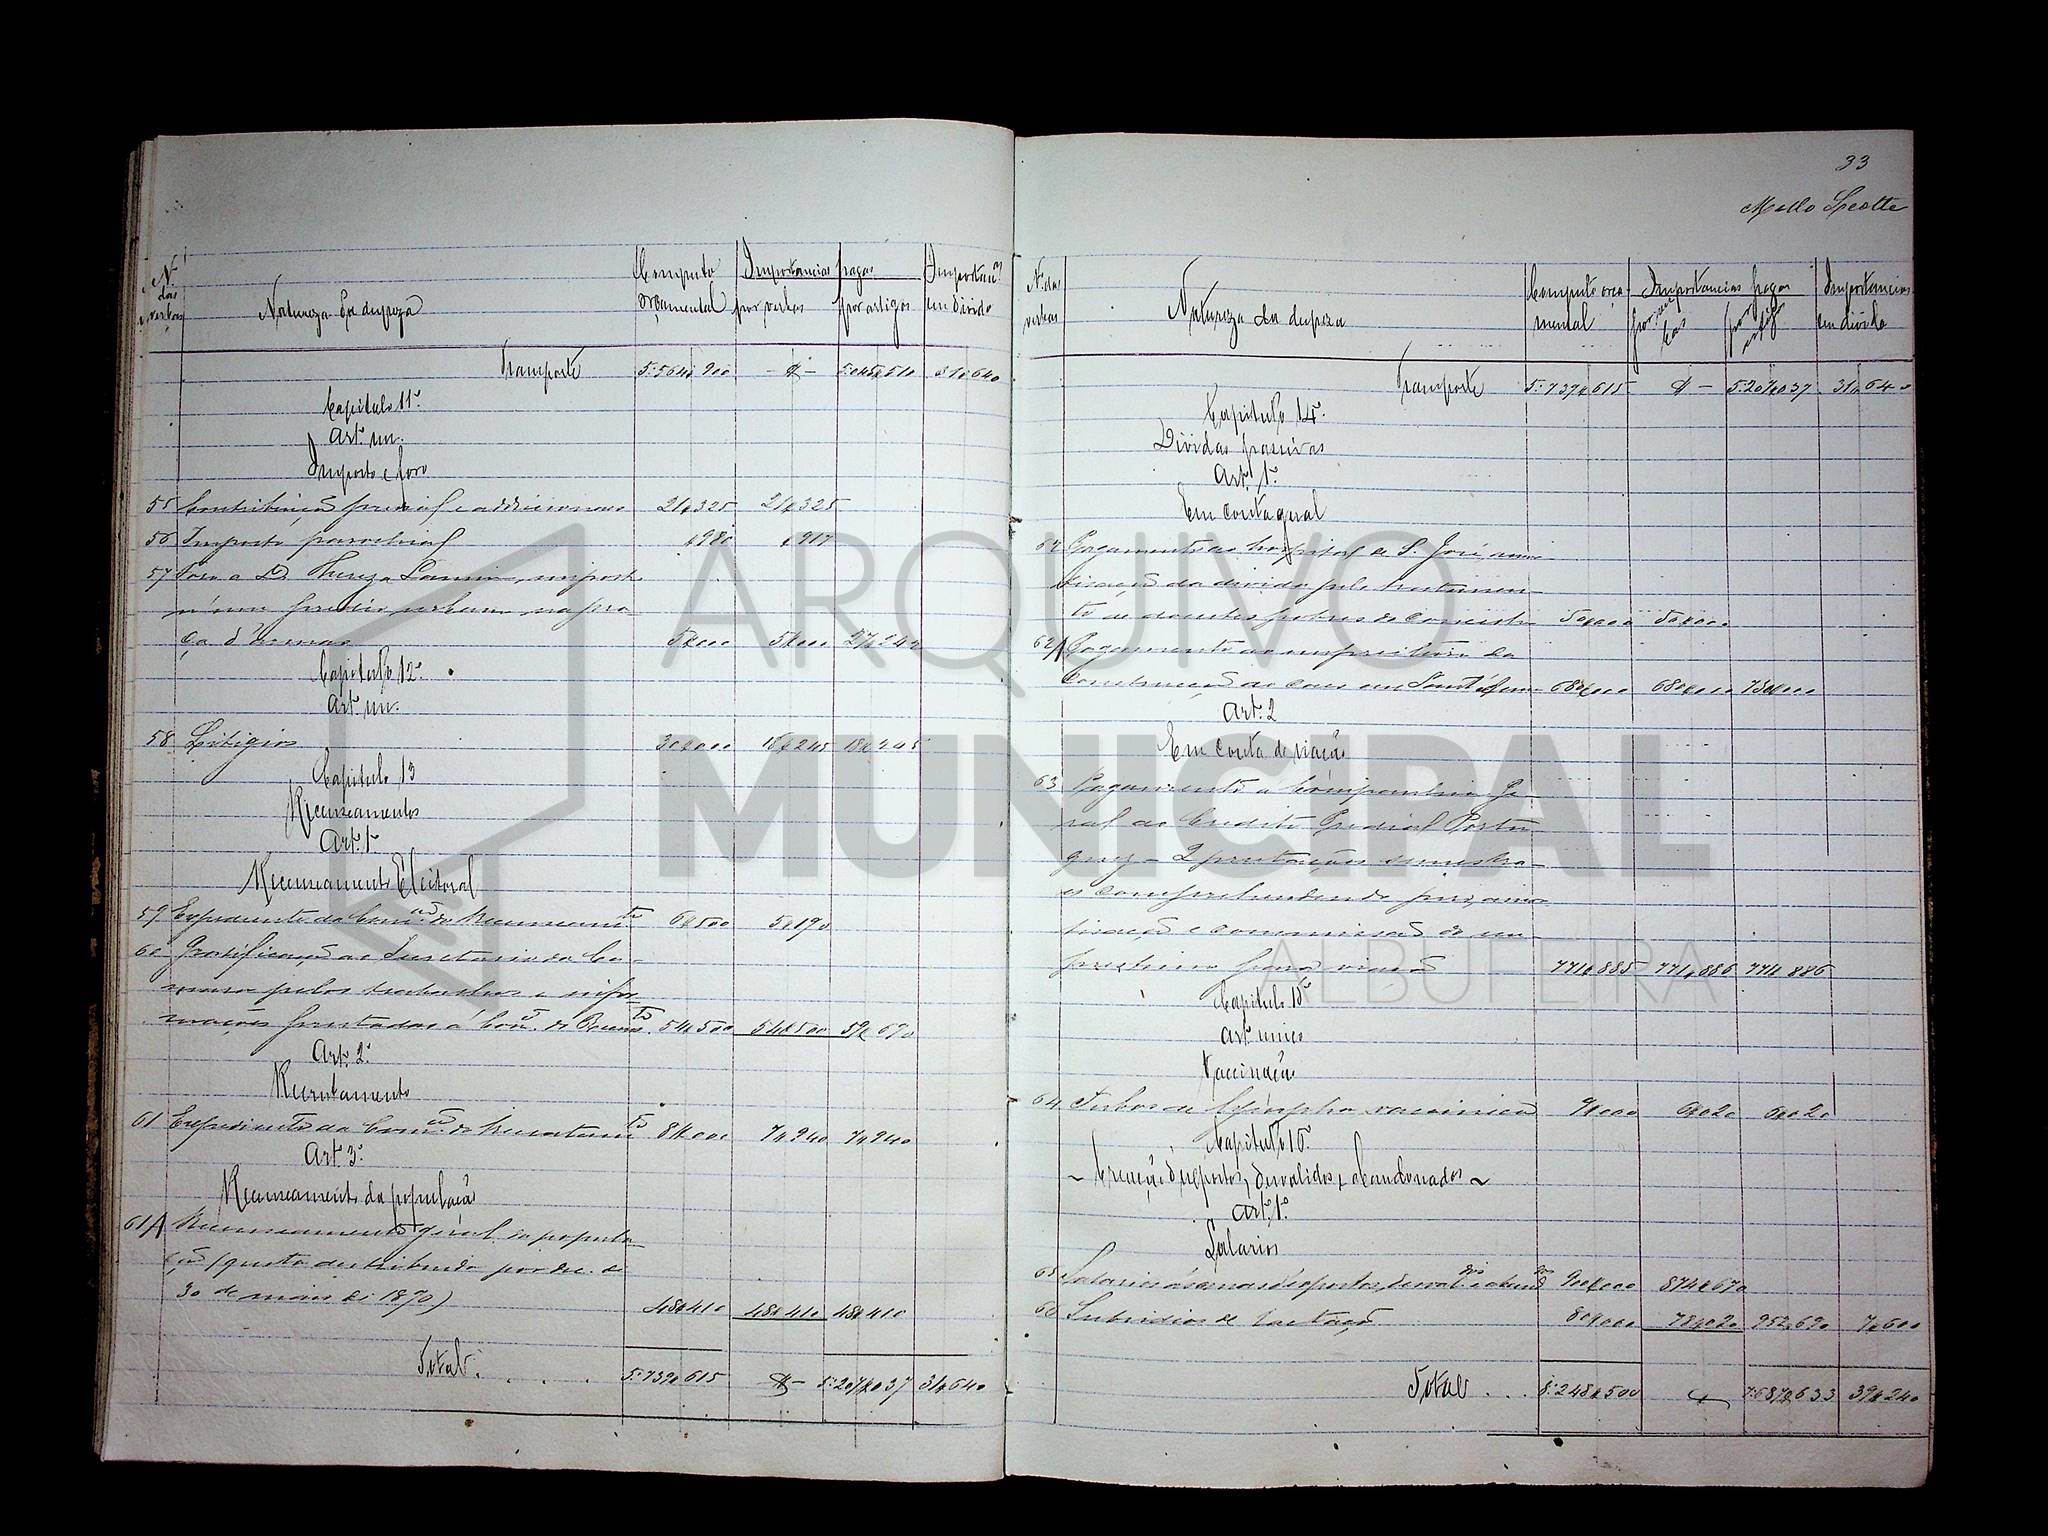 N.º das verbas
Natureza da despeza
Computo orçamental
Importancias pagas
por verbas
por artigos
Importanc.as em divida
Transporte 5:564$900 -$- 5:045$510 31$640
Capitulo 11º
Art.º un.
Imposto e foro
55 Contribuição predial e addicionaes 21$325 21$325
56 Imposto parochial $980 $917
57 Foro a D. Thereza imposto
n'um predio urbano na pra-
ça d'armas 5$000 5$000 27$242
Capitulo 12º
Art.º un.
58 Litigios 30$000 18$245 18$245
Capitulo 13
Recenseamentos
Art.º 1º
Recenseamento Eleitoral
59 Expediente da Com.ão do Recenseam.to 6$500 5$190
60 Gratificação ao Secretario da Ca-
mara pelos trabalhos e infor-
mações prestadas á Com.ão de Recens.to 54$500 54$500 59$690
Art.º 2º
Recrutamento
61 Expediente da Com.ão do Recrutam.to 8$000 7$940 7$940
Art.º 3º
Recenseamento da população
61A Recenseamento geral da popula-
ção (quota destribuida por dec. de
30 de maio de 1890) 48$410 48$410 48$410
Total. . . . . 5:739$615 -$- 5:207$037 31$640
33
Mello Leotte
N.º das verbas
Natureza da despeza
Computo orça-mental
Importancias pagas
por verbas
por artigos
Importancias em divida
Transporte 5:739$615 $- 5:207$037 31$640
Capitulo 14º
Dividas passivas
Art.º 1º
Em conta geral
62 Pagamento ao hospital de S. José, amor-
tisação da divida pelo tratamen-
to de doentes pobres do concelho 50$000 50$000
62A Pagamento ao empreiteiro da
construcção do caes em 680$000 680$000 730$000
Art.º 2
Em conta de viação
63 Pagamento á Companhia Ge-
ral do Credito Predial Portu-
guez - 2 prestações semestra-
es comprehendendo juro, amor-
tisação e commissão do em-
prestimo para viação 771$885 771$886 771$886
Capitulo 15º
Art.º unico
Vaccinação
64 Tubos de lympha vaccinica 9$000 6$020 6$020
Capitulo 16º
~ Creação d'expostos, desvalidos, e abandonados ~
Art.º 1º
Salarios
65 Salarios ás amas d'expostos, desval.dos e aband.os 900$000 874$670
66 Subsidios de lactação 80$000 78$020 952$690 7$600
Total . . . 8:248$500 $ 7:687$633 39$240
ARQUIVO
MUNICIPAL
ALBUFEIRA